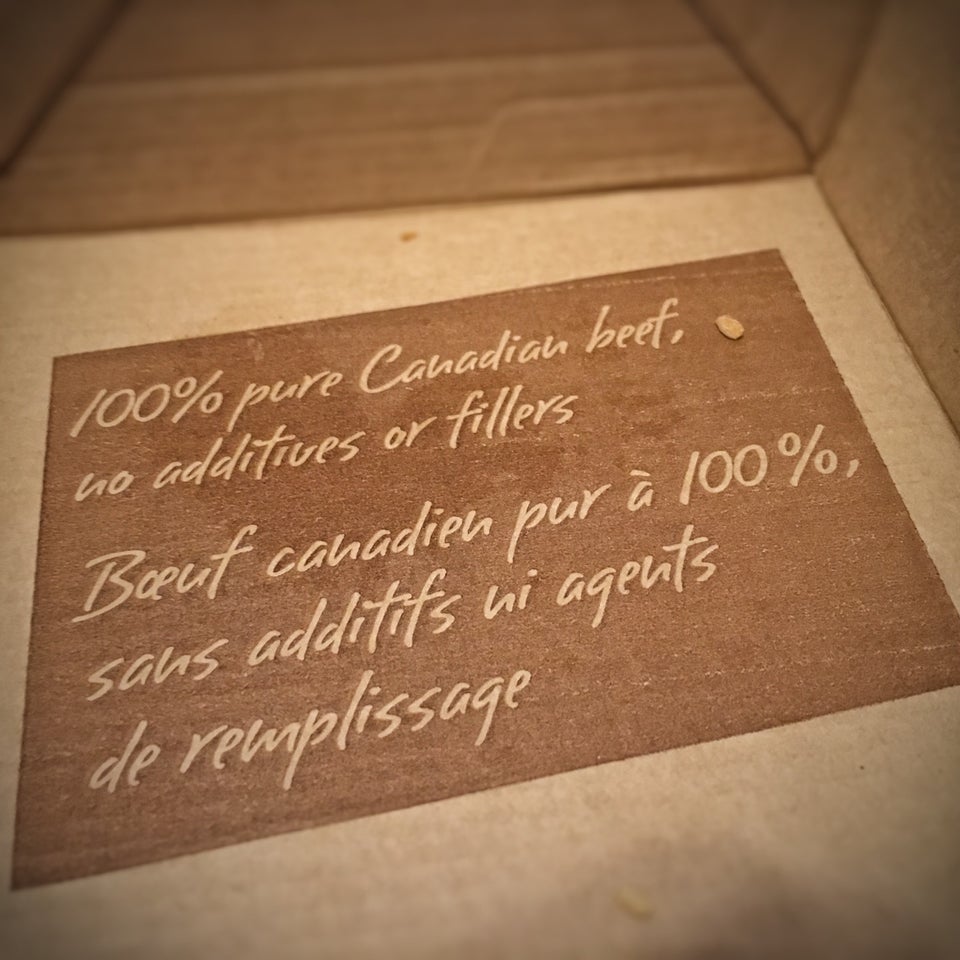 100% pure Canadian beef,
no additives or fillers
Bœuf canadien pur à 100 %,
sans additifs ni agents
de remplissage